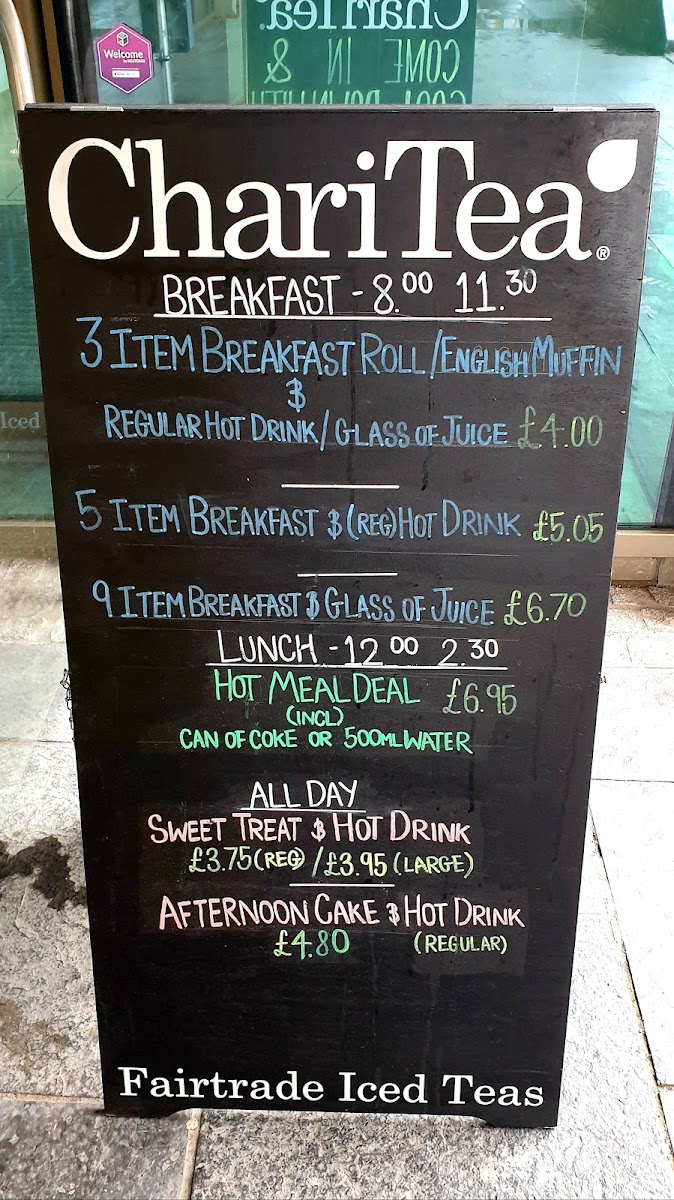 Welcome
ChariTea
COME IN &
COOL DOWN WITH
Iced
ChariTea®
BREAKFAST - 8.00 11.30
3 ITEM BREAKFAST ROLL/ENGLISH MUFFIN
&
REGULAR HOT DRINK/GLASS OF JUICE £4.00
5 ITEM BREAKFAST & (REG) HOT DRINK £5.05
9 ITEM BREAKFAST & GLASS OF JUICE £6.70
LUNCH - 12 00 2.30
HOT MEAL DEAL £6.95
(INCL)
CAN OF COKE OR 500ML WATER
ALL DAY
SWEET TREAT & HOT DRINK
£3.75 (REG) / £3.95 (LARGE)
AFTERNOON CAKE & HOT DRINK
£4.80 (REGULAR)
Fairtrade Iced Teas